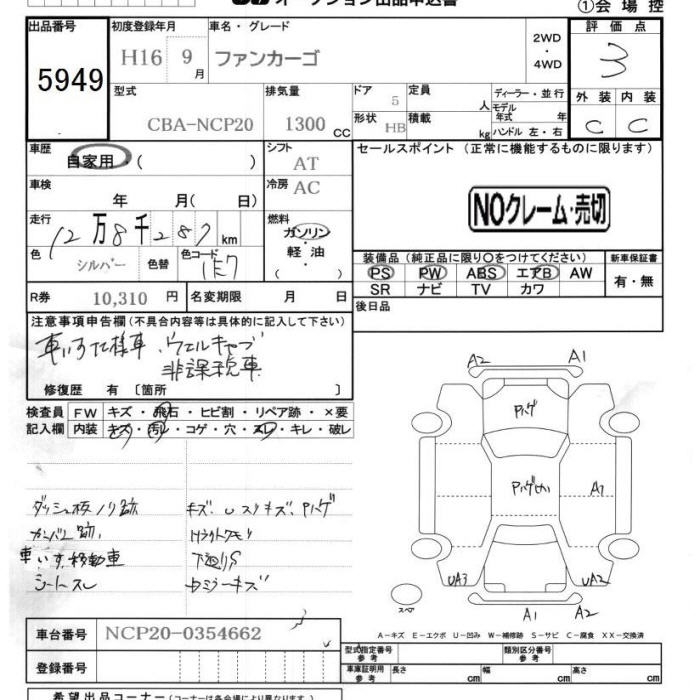 オークション出品申込書
①会場控
出品番号
5949
初度登録年月
H16 9月
車名・グレード
ファンカーゴ
2WD
・
4WD
評価点
3
外装 内装
C C
型式
CBA-NCP20
排気量
1300 CC
ドア 5
形状 HB
定員 人
積載 kg
ディーラー・並行
モデル年式 年
ハンドル 左・右
車歴
自家用・( )
シフト AT
車検
年 月( 日)
冷房 AC
走行
12万8千287km
燃料
ガソリン・
軽油・
( )
色 シルバー 色替
色コード
R券 10,310 円
名変期限 月 日
セールスポイント(正常に機能するものに限ります)
NOクレーム・売切
装備品(純正品に限り〇をつけてください)
PS PW ABS エアB AW
SR ナビ TV カワ
新車保証書
有・無
後日品
注意事項申告欄(不具合内容等は具体的に記入して下さい)
車いす仕様車、ウェルキャブ
非課税車
修復歴 有〔箇所 〕
検査員
記入欄
FW キズ・飛石・ヒビ割・リペア跡・×要
内装 キズ・汚レ・コゲ・穴・スレ・キレ・破レ
ダッシュ板ノリ跡
カンバン跡、
車いす移動車
シートスレ
キズ、Uスリキズ、Pハゲ
Hライトクモリ
下廻りS
Dミラーキズ
A2 A1
Pハゲ
A1
UA3 UA2
スペア
A1 A2
A-キズ E-エクボ U-凹み W-補修跡 S-サビ C-腐食 XX-交換済
車台番号 NCP20-0354662
登録番号
型式指定番号
参考
類別区分番号
参考
車庫証明用
参考
長さ cm 幅 cm 高さ cm
希望出品コーナー(コーナーは各会場により異なります。)